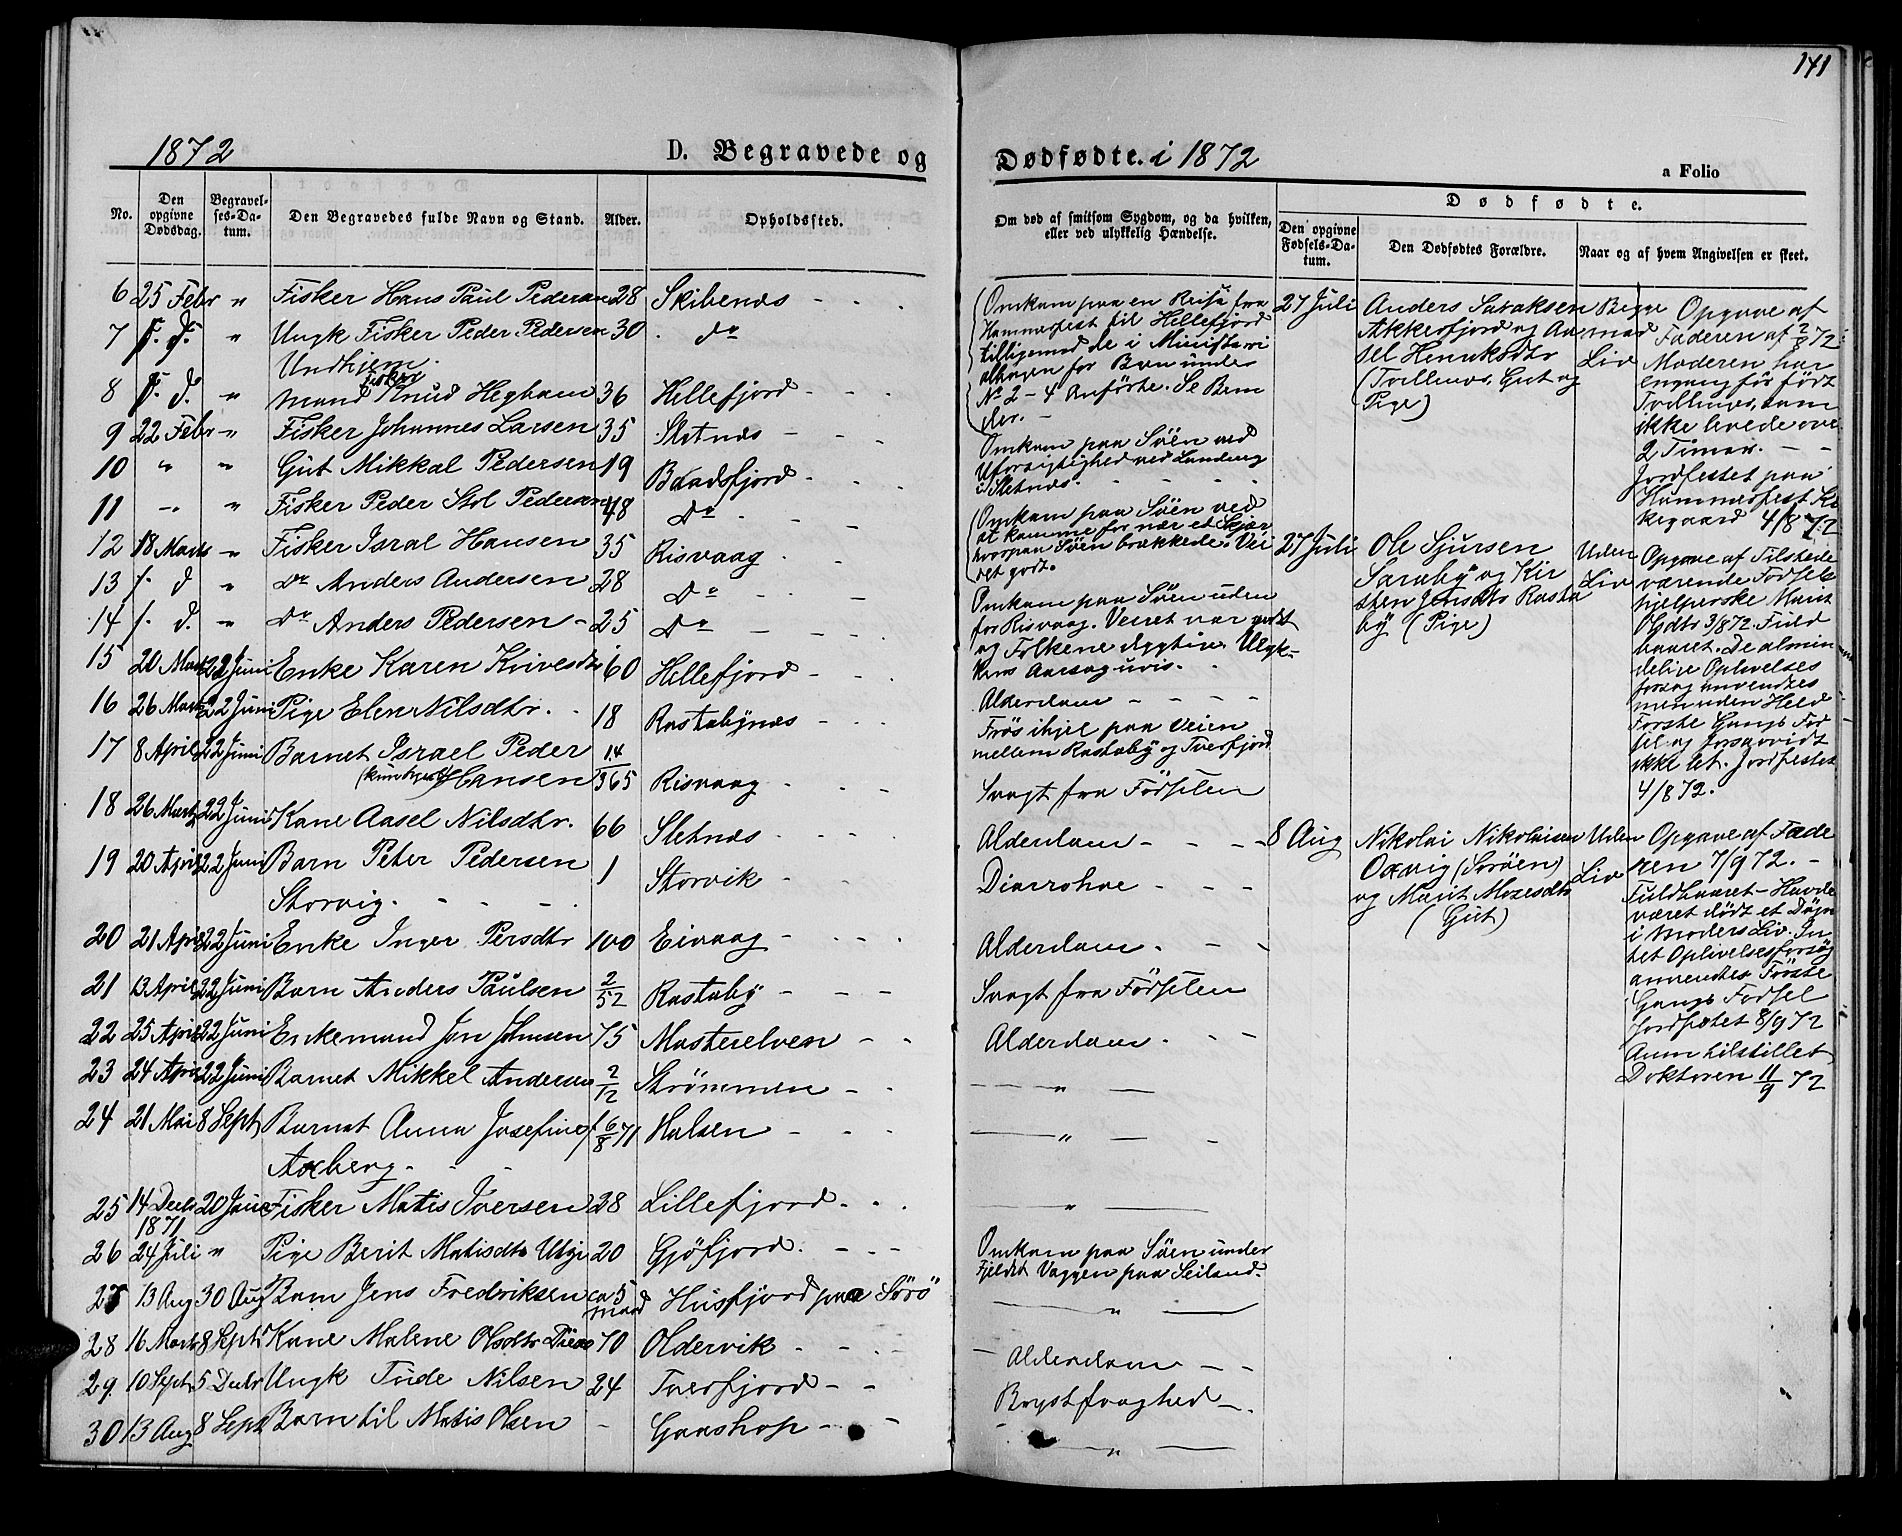 141
1872 D. Begravede og
Dødfødte. i 1872 a Folio
No.
Den opgivne Dødsdag.
Begravelses-Datum.
Den Begravedes fulde Navn og Stand.
Alder.
Opholdssted.
Om død af smitsom Sygdom, og da hvilken, eller ved ulykkelig Hændelse.
Dødfødte.
Den opgivne Fødsels-Datum.
Den Dødfødtes Forældre.
Naar og af hvem Angivelsen er skeet.
6 25 Febr " Fisker Hans Paul Pedersen 28 Skibenæs - - -
7 f. d. " Ungk Fisker Peder Pedersen 30 . do
Undhjem.
8 f. d. " mand Fisker Knud Hegham 36 Hellefjord - - -
9 22 Febr " Fisker Johannes Larsen 35 Sletnæs - - -
10 " " Gut Mikkal Pedersen 19 Baadsfjord - - -
11 " " Fisker Peder Stol Pedersen 48 Do - - -
12 18 Marts " Fisker Isral Hansen 35 Risvaag - -
13 f. d " do Anders Andersen 28 Do - - -
14 f. d. " do Anders Pedersen - 25 Do - - -
15 20 Marts 22 Juni Enke Karen Knivesdtr 60 Hellefjord - - -
16 26 Marts 22 Juni Pige Elen Nilsdtr. - 18 Rastabynæs - - -
17 8 April 22 Juni Barnet Israel Peder 14/365
Hansen Risvaag - - -
18 26 Marts 22 Juni Kone Aasel Nilsdtr. 66 Sletnæs - - -
19 20 April 22 Juni Barn Peter Pedersen 1 Storvik - - -
Storvig. - - -
20 21 April 22 Juni Enke Inger Persdtr 100 Eivaag - - -
21 13 April 22 Juni Barn Anders Paulsen 2/52 Rastaby - - -
22 25 April 22 Juni Enkemand Jon Johnsen 75 Masterelven - -
23 24 April 22 Juni Barnet Mikkel Andersen 2/12 Strømmen - -
24 21 Mai 8 Sept Barnet Anna Josefine f 6/8 71 Halsen - - -
Axberg. - -
25 14 Decbr 1871 20 Fisker Matis Iversen 28 Lillefjord - - -
26 24 Juli " Pige Berit Matisdtr Utsi 20 Gjøfjord. - - -
27 13 Aug 30 Aug Barn Jens Fredriksen ca 5 maad Husfjord paa Sørø
28 16 Marts 8 Sept Kone Malene Olsdtr 70 Oldervik - - -
29. 10 Sept. 5 Decbr Ungk Tude Nilsen 24 Tverfjord - -
30 13 Aug 8 Sept Barn til Matis Olsen - Gaashop - -
Omkom paa en Reise fra
Hammerfest til Hellefjord
tilligemed de i Ministeri
albogen for Børn under
No 2 - 4 Anførte. Se Børn
der. -
Omkom paa Søen ved
Uforsigtighed ved Landing
i Sletnæs.
Omkom paa Søen ved
at komme for nær et Skjær
hvorpaa Søen brækkede. Vei
ret godt.
Omkom paa Søen uden
for Risvaag. Veiret var godt
og Folkene dygtige. Ulyk-
kens Aarsag uvis.
Alderdom - - - -
Frøs ihjel paa Veien
mellem Rastaby og Tverfjord
Svagt fra Fødselen
Alderdom - - -
Diarrohoe - - -
Alderdom. - -
Svagt fra Fødselen
Alderdom. - -
— " —
— " —
— " —
Omkom paa Søen under
Fjeldet Vaggen paa Seiland.
— " —
Alderdom - -
Brystsvaghed - .
— " —
27 Juli Anders Isaksen
Akkerfjord og Aa
sel Henriksdtr
(Tvillinger, Gut og
Pige)
Begge
med
Liv
Opgave af
Faderen af 2/8 72
Moderen har
engang før født
Tvillinger, som
ikke levede over
2 Timer. - -
Jordfæstet paa
Hammerfest Kir
kegaard 4/8 72
27 Juli Ole Sjursen
Saraby og Kir
sten Jensdtr Rasta
by (Pige)
Uden
Liv
Opgave af Tilstede
værende Fødsels
hjelperske Marit
Olsdtr 3/8 72. Fuld
baaret. De almin
delige Oplivelses
forsøg anvendtes
men uden Held
Første Gangs Fød
sel og forsaavidt
ikke let. Jordfæstet
4/8 72.
8 Aug Nikolai Nikolaisen
Oxvig (Sørøen)
og Marit Mosesdtr
(Gut)
Uden
Liv
Opgave af Fade
ren 7/9 72. -
Fuldbaaret - Havde
været dødt et Døgn
i Moders Liv. In
tet Oplivelsesforsøg
anvendtes. Første
Gangs Fødsel
Jordfæstet 8/9 72
Anm tilstillet
Doktoren 11/9 72